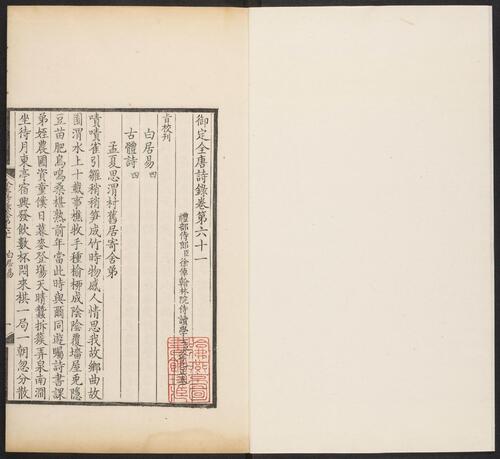 御定全唐詩錄卷第六十一
禮部侍郎臣徐倬翰林院侍讀學
旨校刊
白居易四
古體詩四
孟夏思渭村舊居寄舍弟
嘖嘖雀引雛稍稍笋成竹時物感人情思我故鄉曲故
園渭水上十載事樵牧手種榆柳成陰陰覆墻屋兔隱
豆苗肥鳥鳴桑椹熟前年當此時與爾同遊矚詩書課
弟姪農圃資童僕日暮麥登塲天晴蠶拆蔟弄泉南澗
坐待月東亭宿興發飲數杯悶來棋一局一朝忽分散
白居易
一